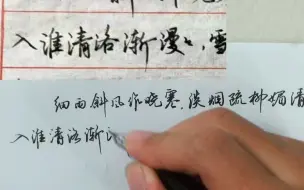 入淮清洛渐漫〻，雪
细雨斜风作晓寒．淡烟疏柳媚清
入淮清洛渐